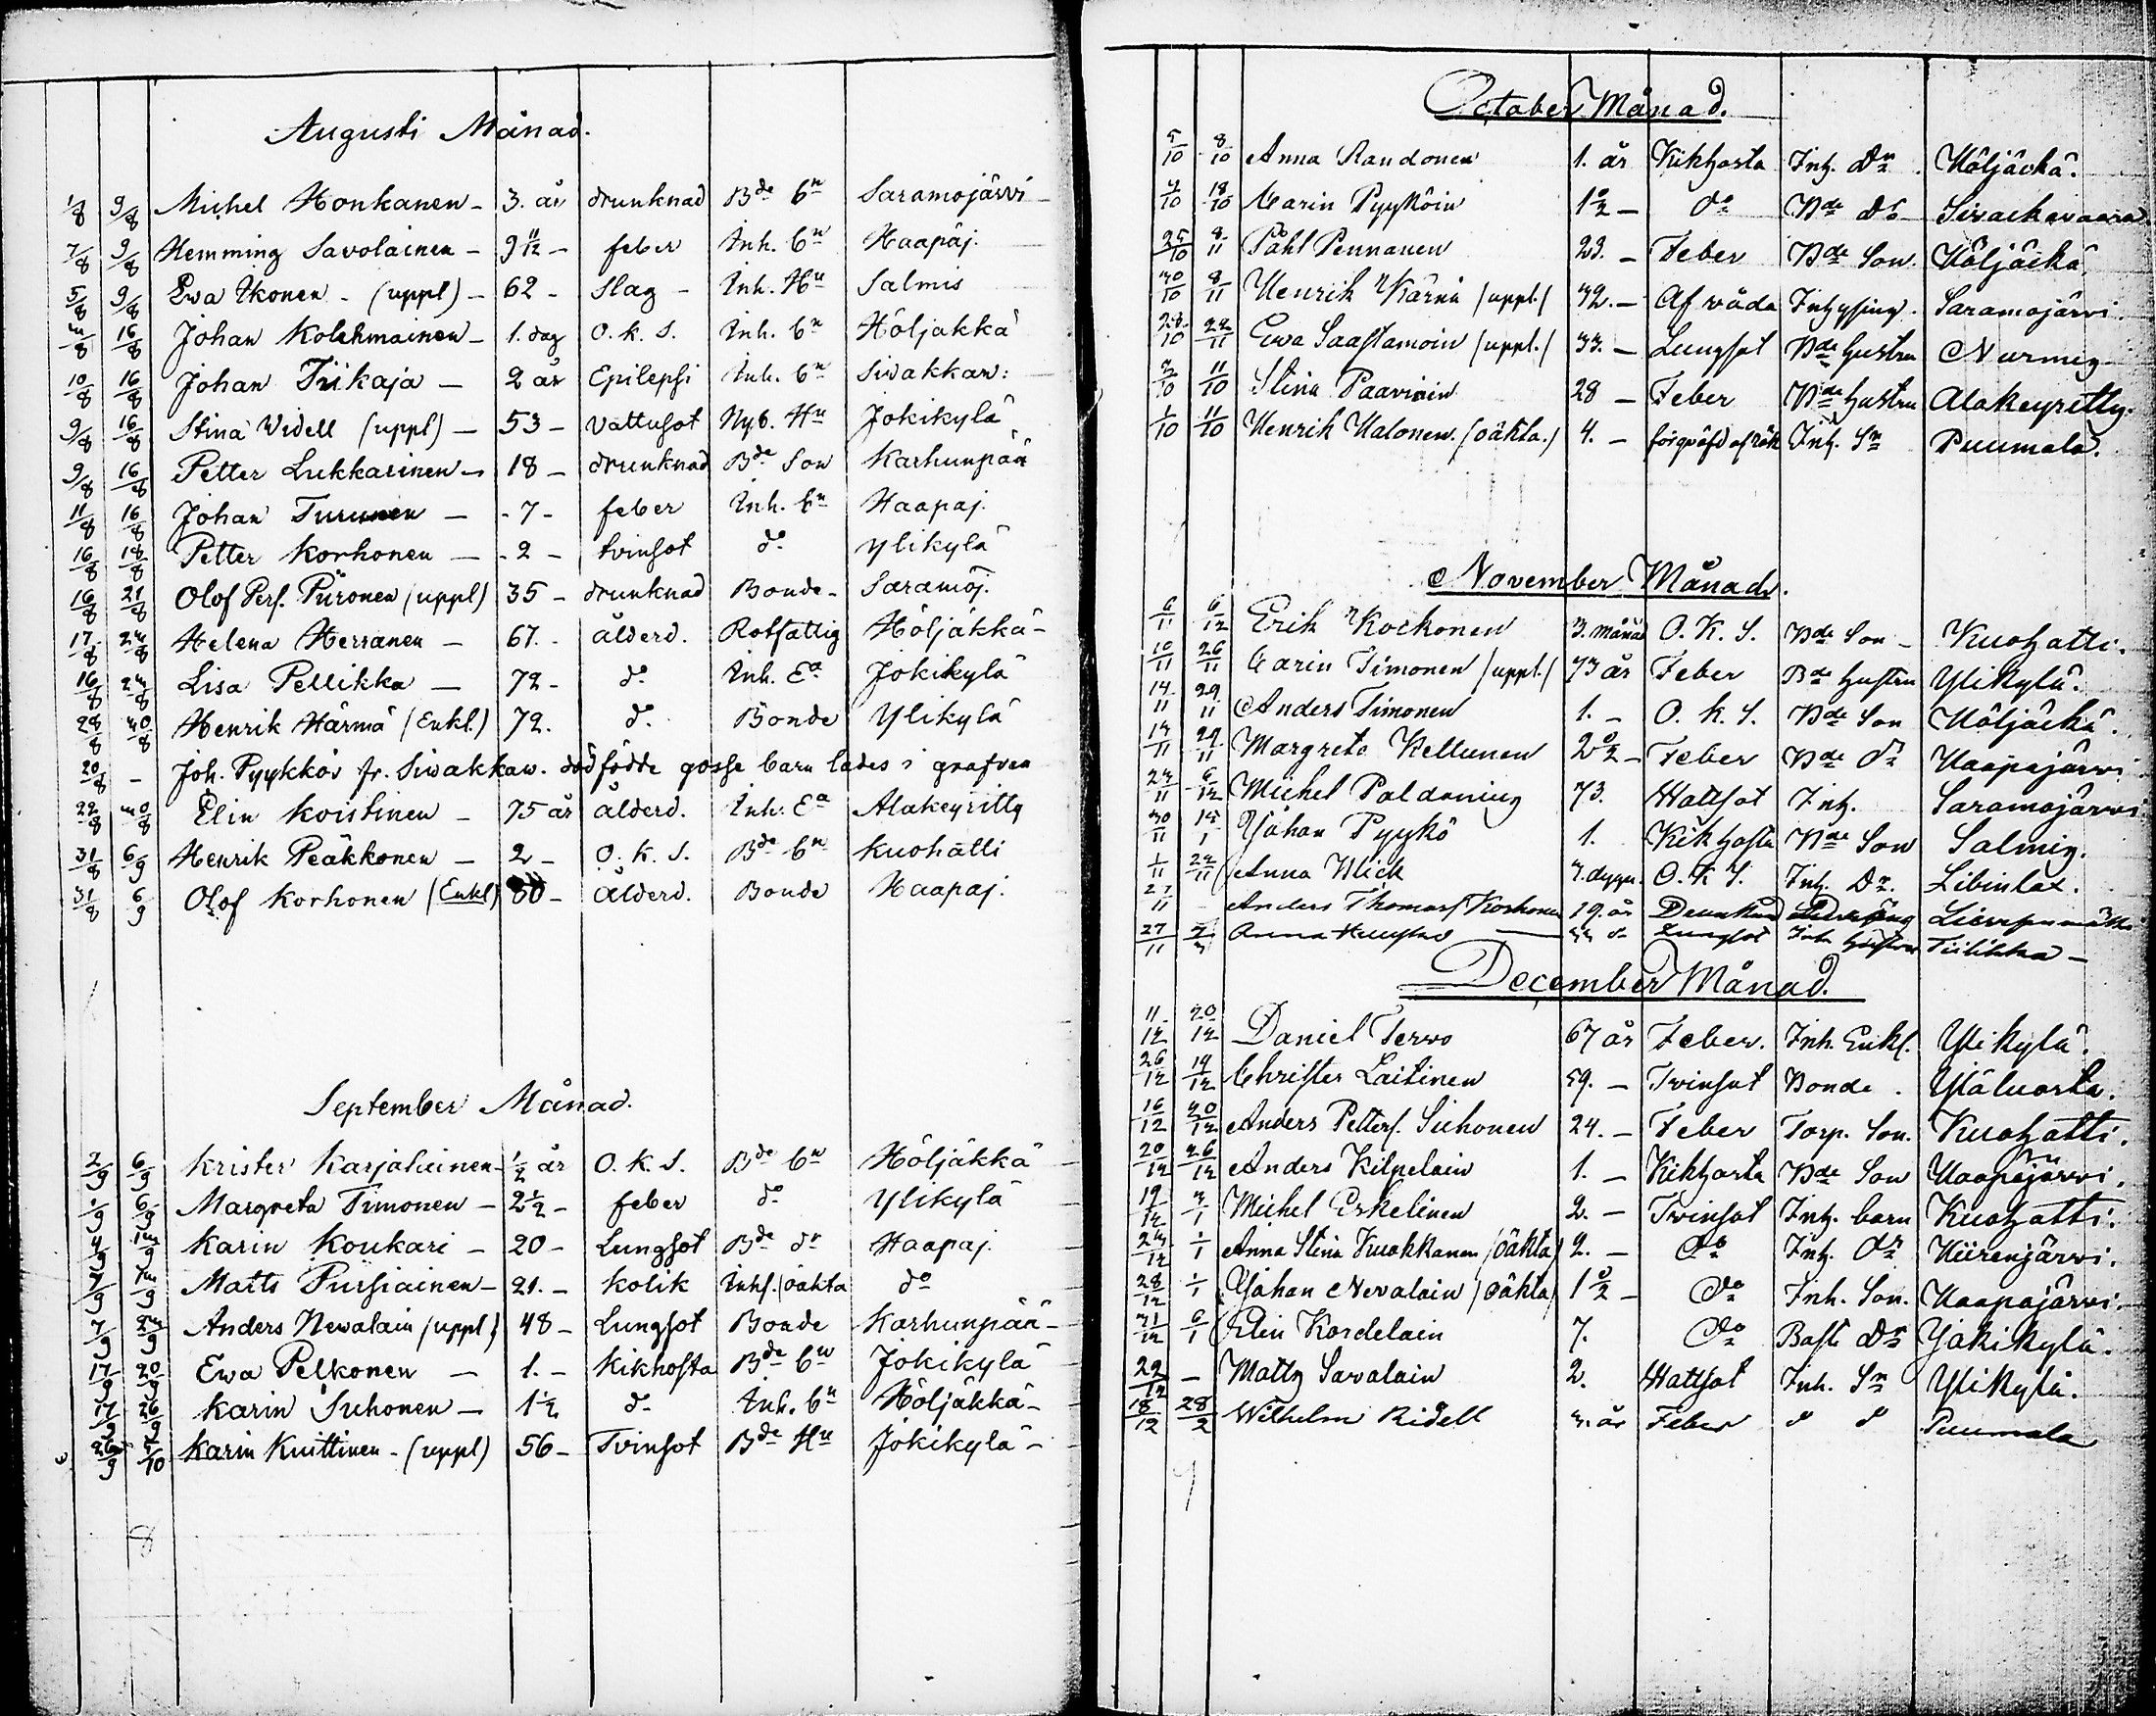 Augusti Månad.
1/8 9/8 Michel Honkanen - 3. år drunknad Bde bn Saramojärvi
7/8 9/8 Hemming Savolainen - 9 11/12 - feber Inh. bn Haapaj.
5/8 9/8 Ewa Ikonen - (uppl) - 62 - Slag - Inh. Hu Salmis
/8 16/8 Johan Kolehmainen - 1. dag O. k. S. Inh. bn Höljäkkä
10/8 16/8 Johan Tiikaja - 2 år Epilepsi Inh. bn Siwakkaw:
9/8 16/8 Stina Widell (uppl) - 53 - Vattusot Nyb. Hu Jokikylä
9/8 16/8 Petter Lukkarinen - 18 - drunknad Bde Son Karhunpää
11/8 16/8 Johan Turunen - - 7 - feber Inh. bn Haapaj.
16/8 18/8 Petter Korhonen - - 2 - tvinsot do Ylikylä
16/8 21/8 Olof Pers. Piironen (uppl) 35 - drunknad Bonde - Saramoj.
17/8 23/8 Helena Herranen - 67. - ålderd. Rotfattig Höljäkkä -
16/8 23/8 Lisa Pellikka - 72 - do Inh. Ea Jokikylä
28/8 30/8 Henrik Härmä (Enkl.) 72. do. Bonde Ylikylä
20/8 - Joh. Pyykkös fr. Siwakkaw. dödfödde gosse barn lades i grafven
22/8 30/8 Elin Koistinen - 75 år ålderd. Inh: Ea Alakeyritty
31/8 6/9 Henrik Peäkkonen - 2 - O. k. S. Bde bn Kuohatti
31/8 6/9 Olof Korhonen (Enkl) 80 - ålderd. Bonde Haapaj.
September Månad.
2/9 6/9 Krister Karjalainen - 1/2 år O. k. S. Bde bn Höljäkkä
1/9 6/9 Margreta Timonen - 2 1/2 - feber do Ylikylä
4/9 13/9 Karin Koukari - 20 - Lungsot Bde dr Haapaj.
7/9 13/9 Matts Pursiainen - 21. - Kolik Inhs. (oäkta do
7/9 23/9 Anders Newalain (uppl) 48 - Lungsot Bonde Karhunpää -
17/9 20/9 Ewa Pelkonen - 1. - Kikhosta Bde bn Jokikylä
17/9 26/9 Karin Suhonen - 1 1/2 do Inh. bn Höljäkkä -
26/9 5/10 Karin Kuittinen - (uppl) 56 - Tvinsot Bde Hu Jokikylä -
8
October Månad.
5/10 8/10 Anna Randonen 1. år Kikhosta Inh. Dr Höljäckä.
9/10 18/10 Carin Pyykköin 1 1/2 - do Bde dr Sivackavaara
25/10 8/11 Påhl Pennanen 23. - Feber Bde Son. Höljäckä
30/10 8/11 Henrik Kärnä (uppl.) 32. - Af våda Inhysing. Saramojärvi.
28/10 22/11 Ewa Saastamoin (uppl.) 33. - Lungsot Bde hustru Nurmes
/10 11/10 Stina Paavinin 28 - Feber Bde hustru Alakeyritty.
1/10 11/10 Henrik Halonen. (oäkta.) 4. - Inh. Sn Puumala.
November Månad.
6/11 6/12 Erik Kockonen 3. Månad O. K. S. Bde Son - Kuohatti.
10/11 26/11 Carin Timonen (uppl.) 73 år Feber Bde hustru Ylikylä.
14/11 29/11 Anders Timonen 1. - O. K. S. Bde Son Höljäckä.
14/11 29/11 Margreta Keltunen 2 1/2 - Feber Bde dr Haapajärvi
24/11 6/12 Michel Paldaning 73. Wattsot Inh. Saramojärvi
30/11 15/1 Johan Pyykö 1. Kikhosta Bde Son Salmis.
1/11 22/11 Anna Wick 3. dygn. O. K S. Inh. Dr. Libinlax.
27/11 - Anders Thomass Korhonen 19. år Drunknad
27/11 Anna Lungsot Inh. hustru Tiilikka -
December Månad.
11/12 20/12 Daniel Terwo 67 år Feber. Inh. Enkl. Ylikylä.
26/12 19/12 Christer Laitinen 59. - Twinsot Bonde. Yläluosta.
16/12 20/12 Anders Petters. Suhonen 24. - Feber Torp. Son. Kuohatti.
20/12 26/12 Anders Kilpelain 1. - Kikhosta Bde Son Haapajärvi.
19/12 /1 Michel Eskelinen 2. - Twinsot Inh. barn Kuohatti.
23/12 1/1 Anna Stina Kuokkanen (oäkta) 2. - do Inh. dr Kiirenjärvi.
28/12 1/1 Johan Nevalain (oäkta) 1 1/2 - do Inh. Son. Haapajärvi.
31/12 6/1 Elin Kordelain 7. do Bast. Dr Jokikylä.
22/12 - Matts Savalain 2. Wattsot Inh. Sn Ylikylä.
18/12 28/2 Wilhelm Ridell 3. år Feber d d Puumala
9